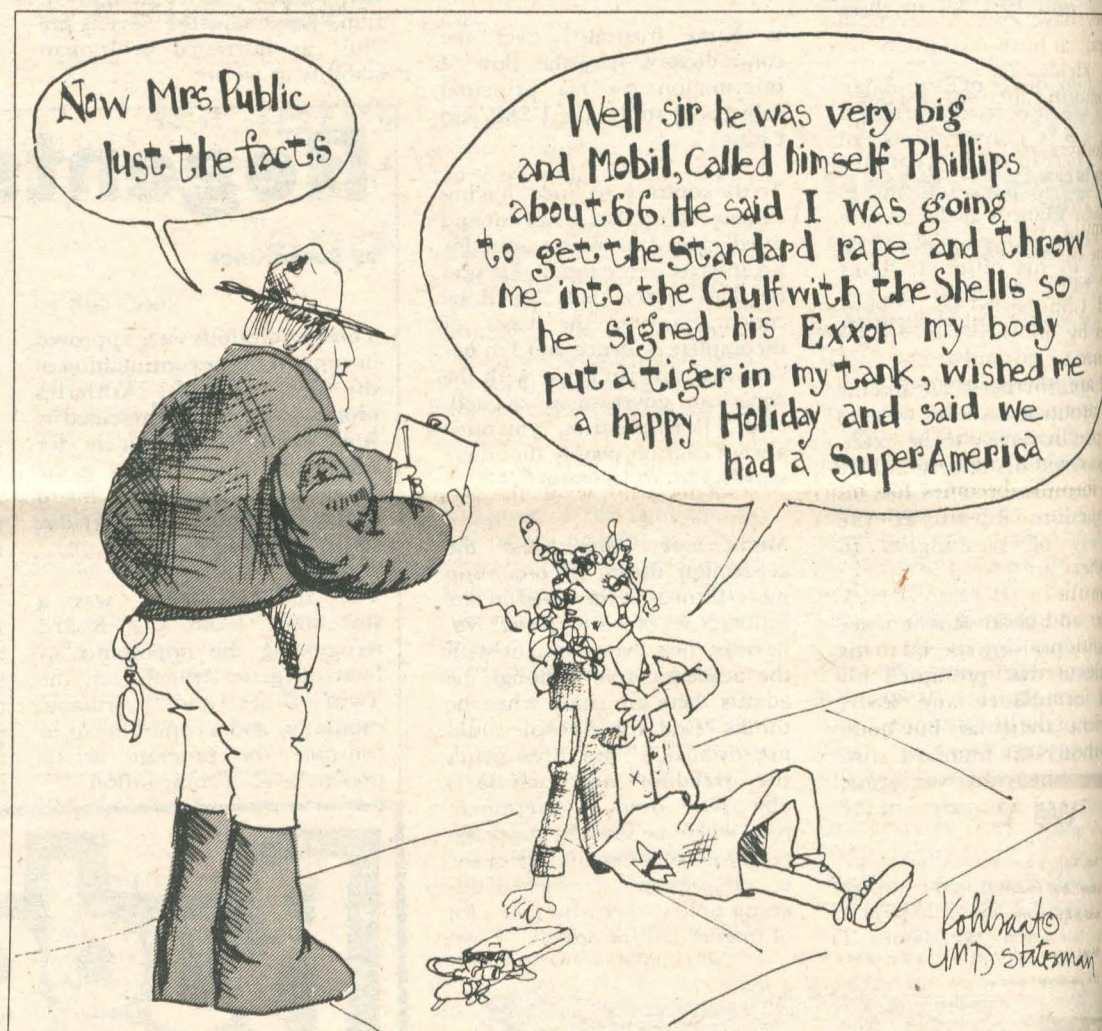 Now Mrs. Public
Just the facts
Well sir he was very big
and Mobil, Called himself Phillips
about 66. He said I was going
to get the Standard rape and throw
me into the Gulf with the Shells so
he signed his Exxon my body
put a tiger in my tank, wished me
a happy Holiday and said we
had a SuperAmerica
UMD Statesman